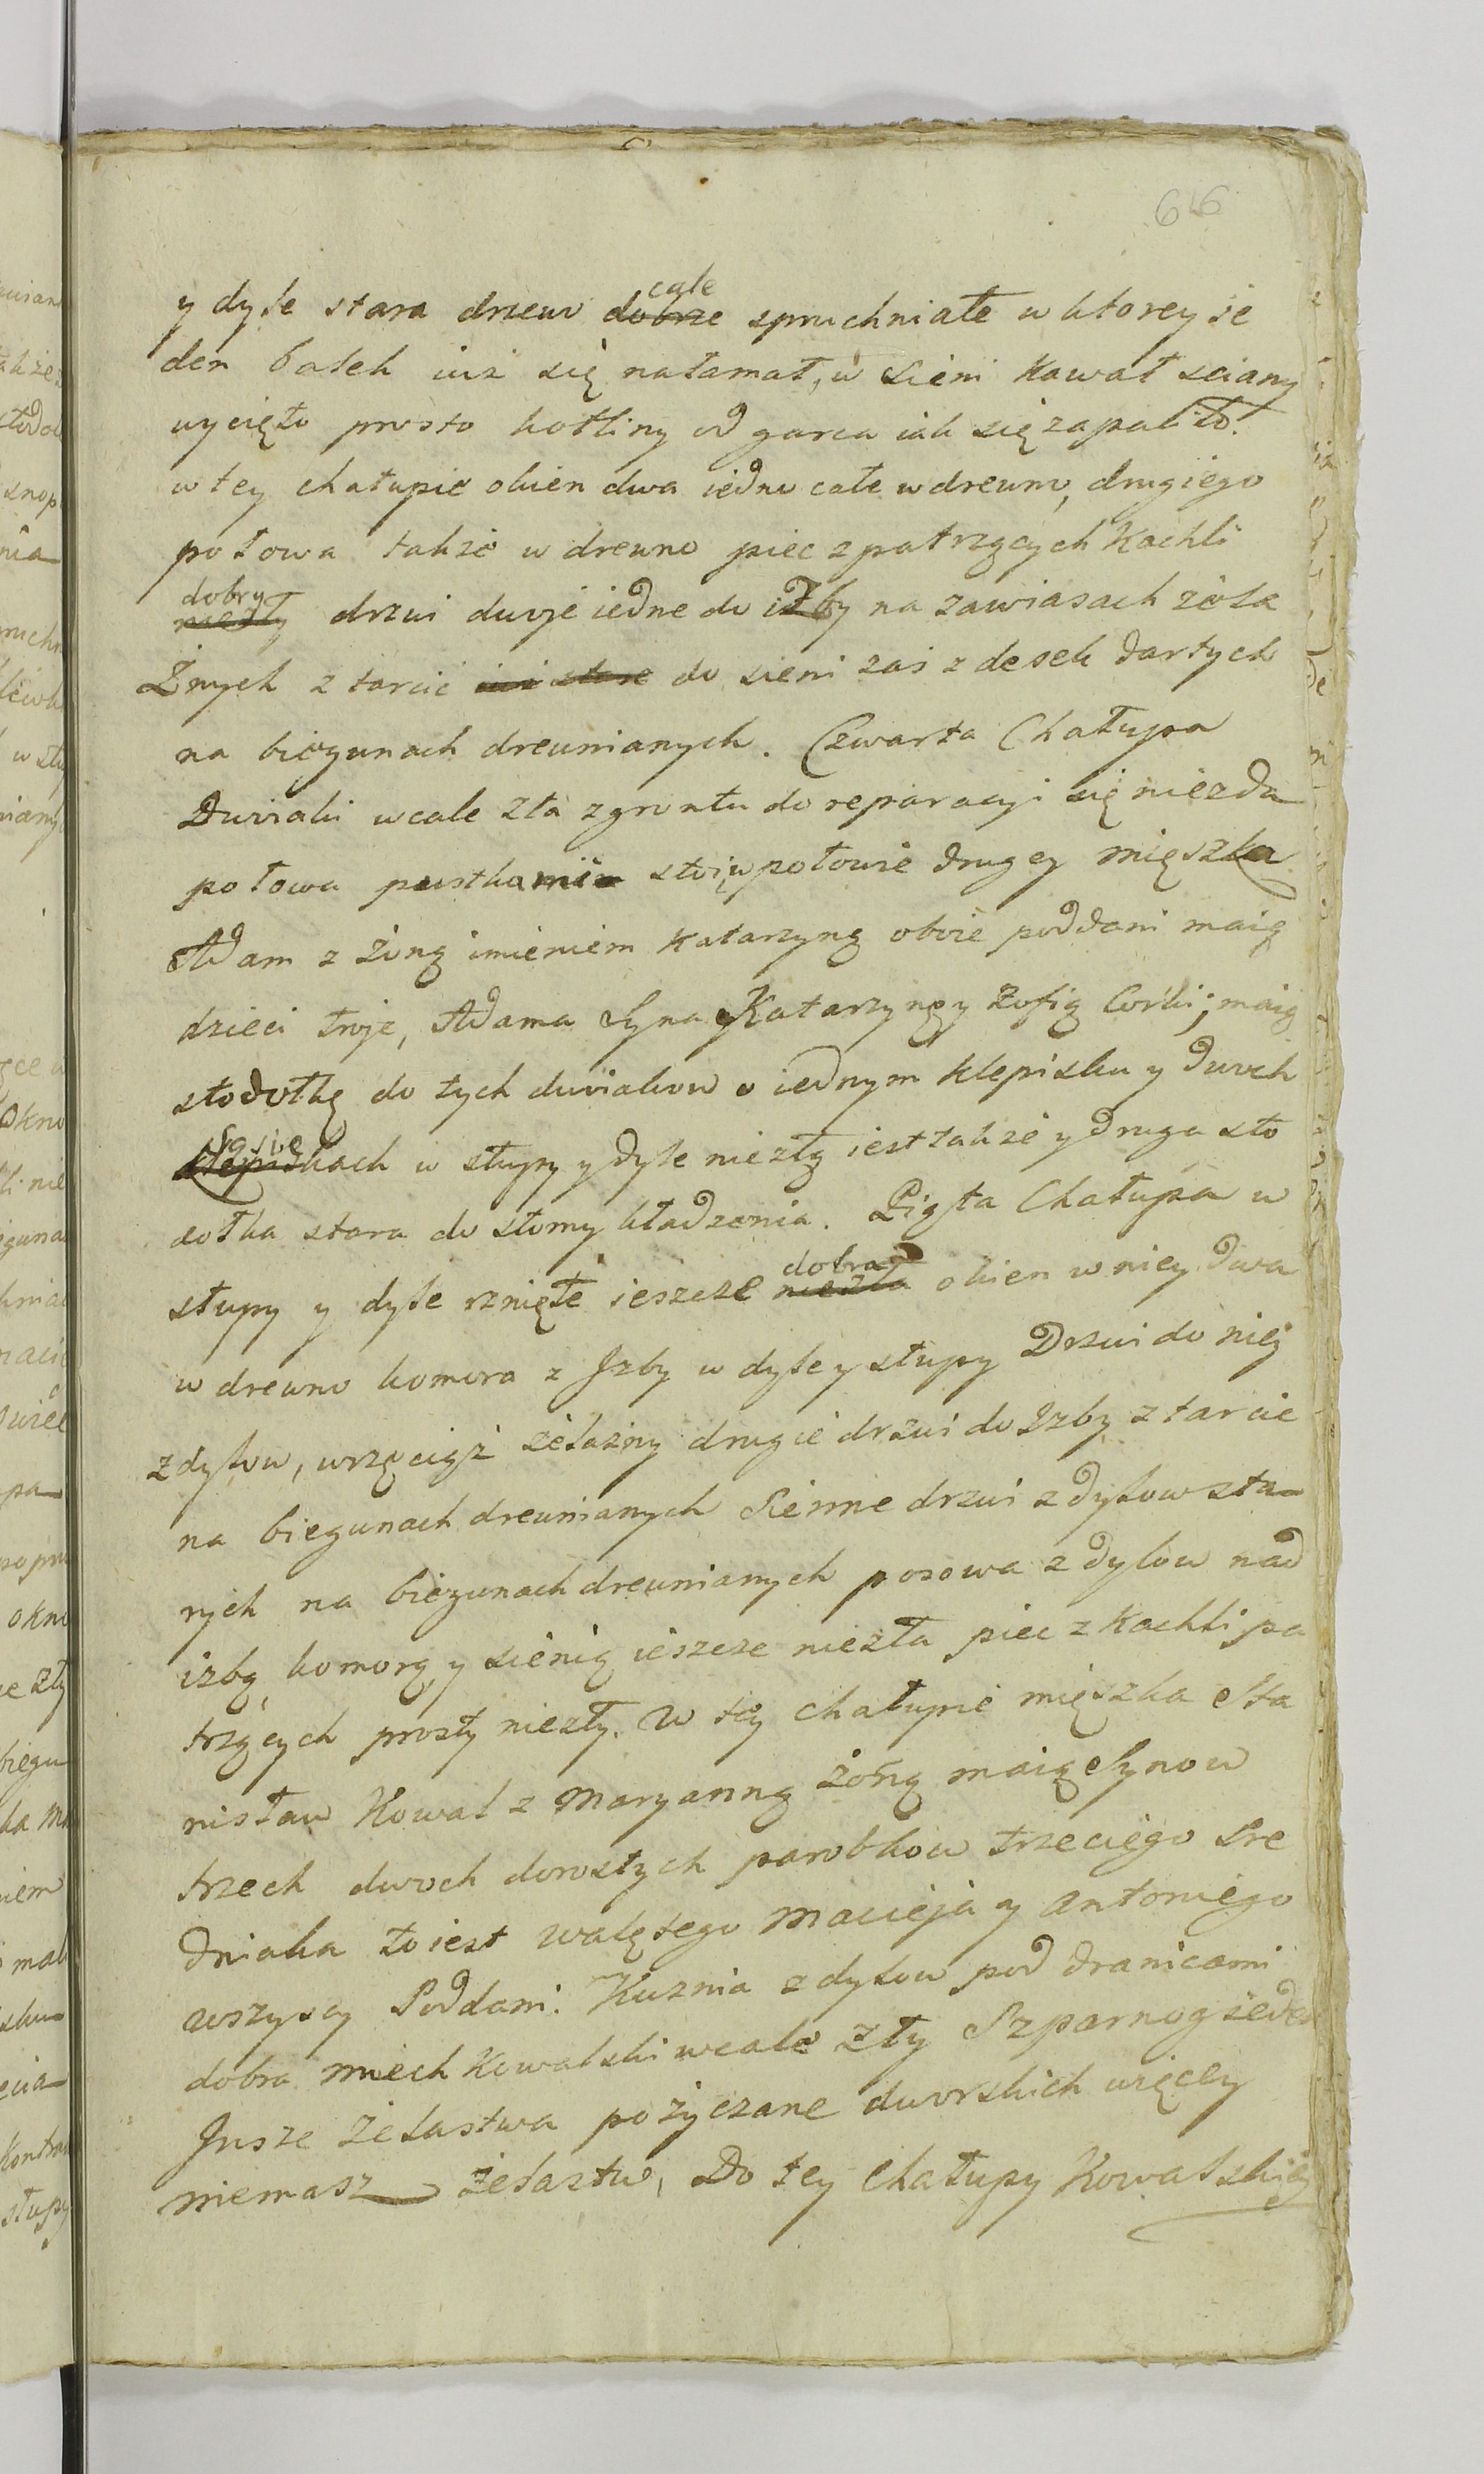 66
y dyle stara drzewo dobrze cale spruchniałe w ktorey ie
den bałek iuż się nałamał, w sieni kawał sciany
wycięto prosto kotliny od garca iak się zapaliło.
w tey chałupie okien dwa iedno całe w drewno, drugiego
połowa takze w drewno piec z patrzących kachli
niezły dobry drzwi dwoje iedne do izby na zawiasach zela
znych z tarcic iuż stare do sieni zaś z desek dartych
na biegunach drewnianych. Czwarta Chałupa
Dwiaki wcale zła z gruntu do reparacyi się niezda
połowa pustkami stoi, w połowie drugey mięszka
Adam z żoną imieniem Katarzyną oboie poddani maią
dzieci troje, Adama Syna y Katarzynę y Zofią Corki; maią
stodołkę do tych dwiakow o iednym klepisku y dwoch
Sąsiekach w słupy y dyle niezłą iest takze y druga sto
dołka stara do słomy kładzenia. Piąta Chałupa w
słupy y dyle rznięte ieszcze niezła dobra okien w niey dwa
w drewno komora z Izby w dyle y słupy Drzwi do niej
z dylow, wrzęciąż żelazny drugie drzwi do Izby z tarcic
na biegunach drewnianych Sienne drzwi z dylow sta
rych na biegunach drewnianych posowa z dylow nad
izbą, komorą, y sienią ieszcze niezła piec z kachli pa
trzących prosty niezły. W tey chałupie mięszka Sta
nisław Kowal z Maryanną żoną maią Synow
trzech dwoch dorosłych parobkow trzeciego Sre
dniaka to iest Walętego Macieja y Antoniego
wszyscy Poddani. Kuznia z dylow pod dranicami
dobra miech Kowalski wcale zły Szparnog ieden
Insze Żelastwa pożyczane dworskich więcey
niemasz żelastw, Do tey Chałupy Kowalskiey